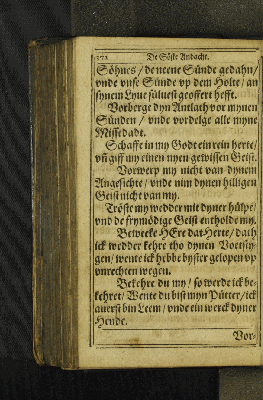 372 De Söste Andacht.
Söhnes / de neene Sünde gedahn /
vnde vnse Sünde vp dem Holte / an
synem Lyue süluest geoffert hefft.
Vorberge dyn Antlath vor mynen
Sünden / vnde vordelge alle myne
Missedadt.
Schaffe in my Godt ein rein herte /
vñ giff my einen nyen gewissen Geist.
Vorwerp my nicht van dynem
Angesichte / vnde nim dynen hilligen
Geist nicht van my.
Tröste my wedder mit dyner hülpe /
vnd de frymödige Geist entholde my.
Beweeke HEre dat Herte / dath
ick wedder kehre tho dynen Voetsty-
gen / wente ick hebbe byster gelopen vp
vnrechten wegen.
Bekehre du my / so werde ick be-
kehret / Wente du bist myn Pütter / ick
auerst bin Leem / vnde ein werck dyner
Hende.
Vor-